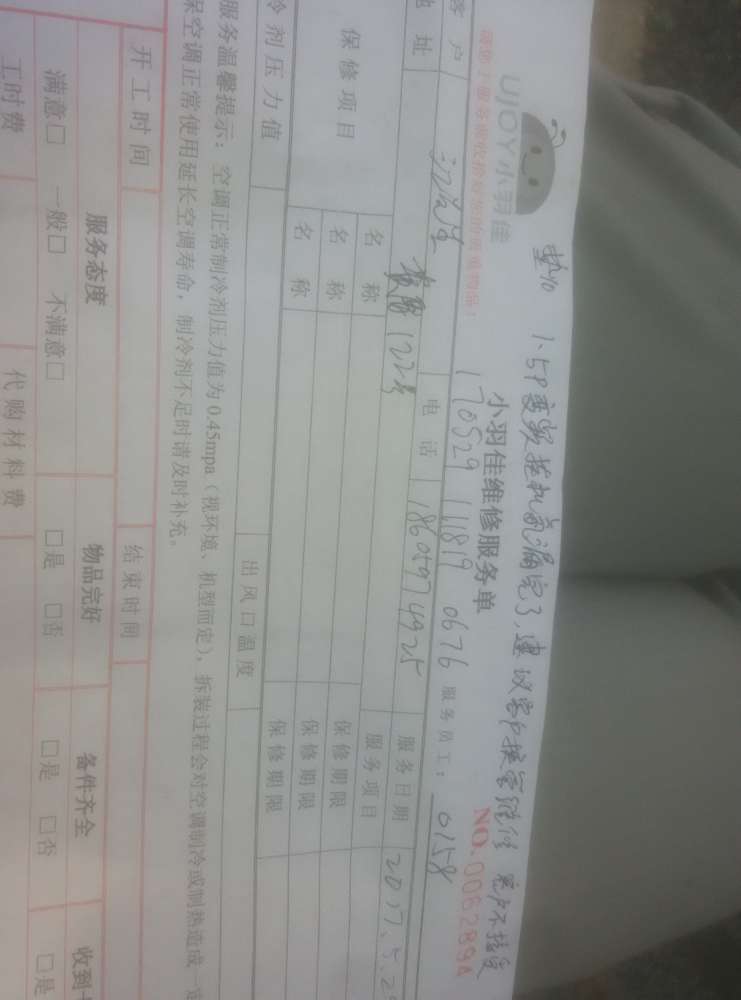 1.5P变频挂机氟漏完了,建议客户换管维修 客户不接受
UJOY小羽佳
小羽佳维修服务单
NO.0062894
170529 111819 0676 服务员工: 0158
客户
江先生
电话
18605974925
服务日期
2017.5.29
地址
122号
服务项目
保修项目
名称
保修期限
名称
保修期限
名称
保修期限
冷剂压力值
出风口温度
服务温馨提示:空调正常制冷剂压力值为0.45mpa(视环境、机型而定),拆装过程会对空调制冷或制热造成一定
保空调正常使用延长空调寿命,制冷剂不足时请及时补充。
开工时间
结束时间
服务态度
物品完好
备件齐全
收到
满意□ 一般□ 不满意□
□是 □否
□是 □否
□是
工时费
代购材料费